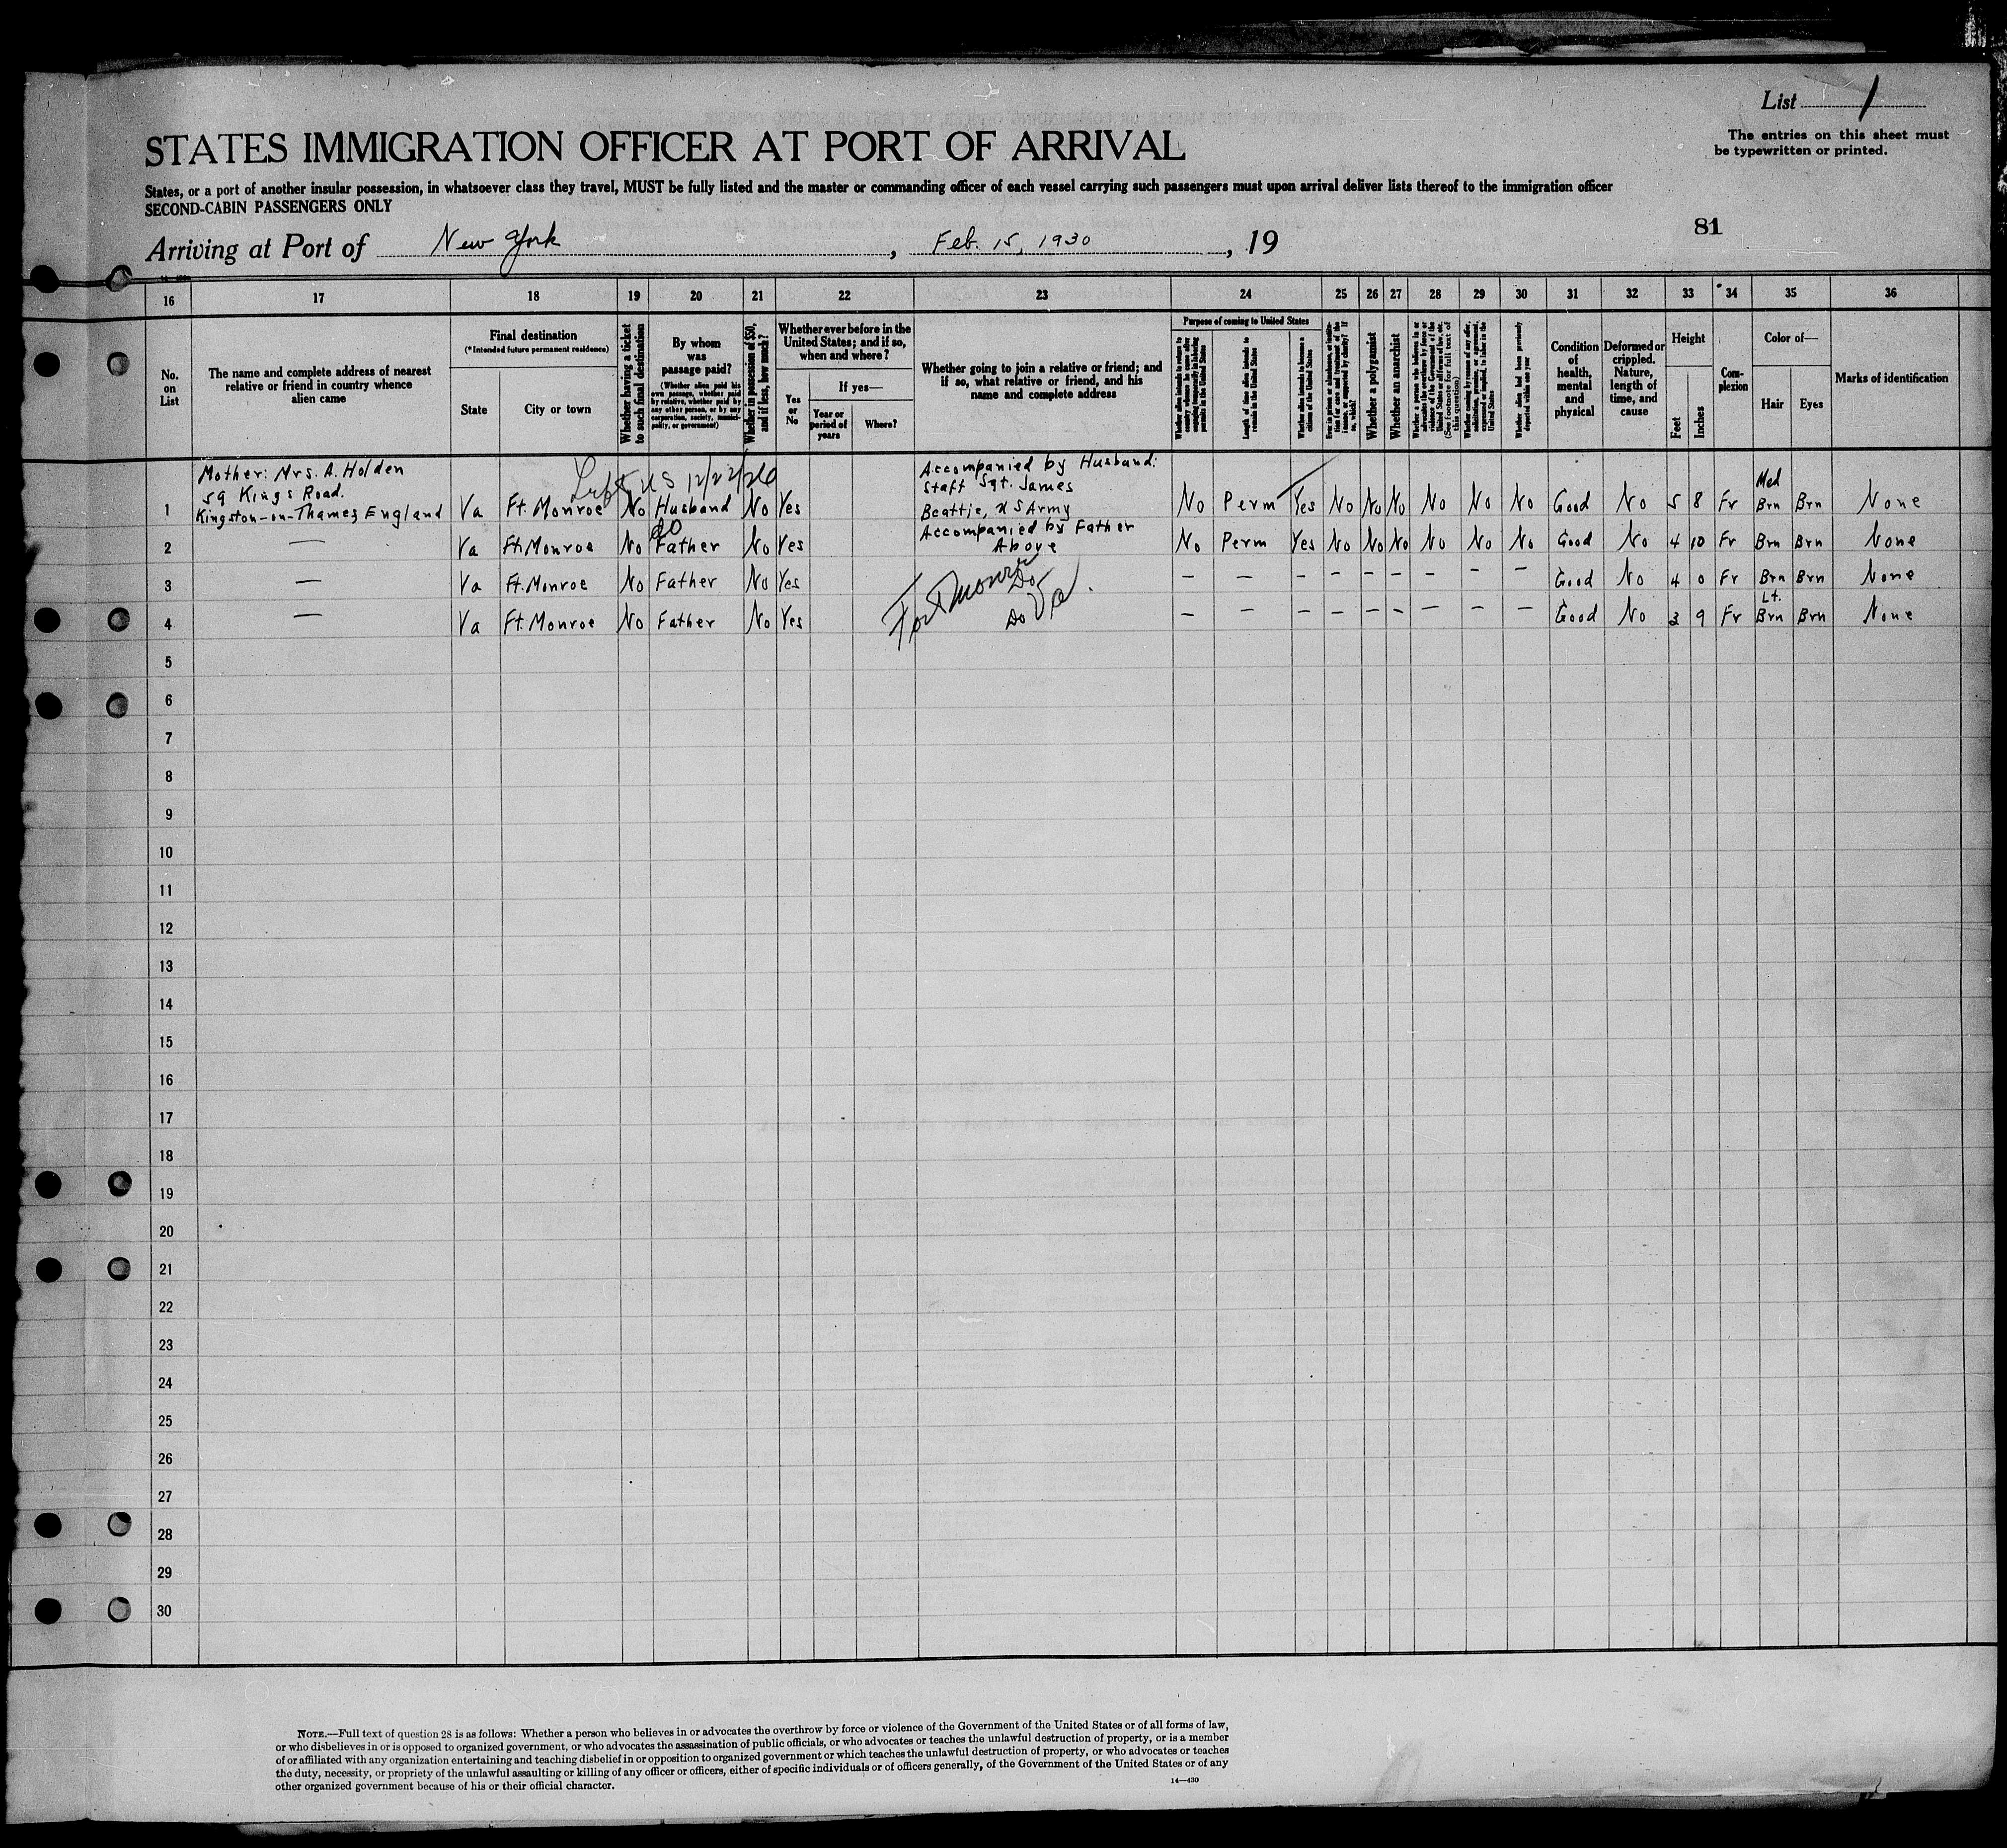 List 1
The entries on this sheet must
be typewritten or printed.
STATES IMMIGRATION OFFICER AT PORT OF ARRIVAL
States, or a port of another insular possession, in whatsoever class they travel, MUST be fully listed and the master or commanding officer of each vessel carrying such passengers must upon arrival deliver lists thereof to the immigration officer
SECOND-CABIN PASSENGERS ONLY
81
Arriving at Port of New York, Feb. 15, 1930, 19
16 17 18 19 20 21 22 23 24 25 26 27 28 29 30 31 32 33 34 35 36
No.
on
List
The name and complete address of nearest
relative or friend in country whence
alien came
Final destination
(*Intended future permanent residence)
State
City or town
Whether having a ticket
to such final destination
By whom
was
passage paid?
(Whether alien paid his
own passage, whether paid
by relative, whether paid by
any other person, or by any
corporation, society, munici-
pality, or government)
Whether in possession of $50,
and if less, how much?
Whether ever before in the
United States; and if so,
when and where?
Yes
or
No
If yes—
Year or
period of
years
Where?
Whether going to join a relative or friend; and
if so, what relative or friend, and his
name and complete address
Purpose of coming to United States
Whether alien intends to return to
country whence he came after
engaging temporarily in laboring
pursuits in the United States
Length of time alien intends to
remain in the United States
Whether alien intends to become a
citizen of the United States
Ever in prison or almshouse, or institu-
tion for care and treatment of the
insane, or supported by charity? If
so, which?
Whether a polygamist
Whether an anarchist
Whether a person who believes in or
advocates the overthrow by force or
violence of the Government of the
United States or all forms of law, etc.
(See footnote for full text of
this question)
Whether coming by reason of any offer,
solicitation, promise, or agreement,
expressed or implied, to labor in the
United States
Whether alien had been previously
deported within one year
Condition
of
health,
mental
and
physical
Deformed or
crippled.
Nature,
length of
time, and
cause
Height
Feet
Inches
Com-
plexion
Color of—
Hair
Eyes
Marks of identification
Left US 12/22/26
Mother: Mrs. A. Holden
59 Kings Road.
Kingston-on-Thames, England
Accompanied by Husband:
Staff Sgt. James
Beattie, U S Army
Med
1 Va Ft. Monroe No Husband No Yes No Perm Yes No No No No No No Good No 5 8 Fr Brn Brn None
do
Accompanied by Father
Above
2 — Va Ft. Monroe No Father No Yes No Perm Yes No No No No No No Good No 4 10 Fr Brn Brn None
3 — Va Ft. Monroe No Father No Yes Do — — — — — — — — — Good No 4 0 Fr Brn Brn None
Fort Monroe Va.
Lt.
4 — Va Ft. Monroe No Father No Yes Do — — — — — — — — — Good No 3 9 Fr Brn Brn None
5
6
7
8
9
10
11
12
13
14
15
16
17
18
19
20
21
22
23
24
25
26
27
28
29
30
NOTE.—Full text of question 28 is as follows: Whether a person who believes in or advocates the overthrow by force or violence of the Government of the United States or of all forms of law,
or who disbelieves in or is opposed to organized government, or who advocates the assassination of public officials, or who advocates or teaches the unlawful destruction of property, or is a member
of or affiliated with any organization entertaining and teaching disbelief in or opposition to organized government or which teaches the unlawful destruction of property, or who advocates or teaches
the duty, necessity, or propriety of the unlawful assaulting or killing of any officer or officers, either of specific individuals or of officers generally, of the Government of the United States or of any
other organized government because of his or their official character.
14—430